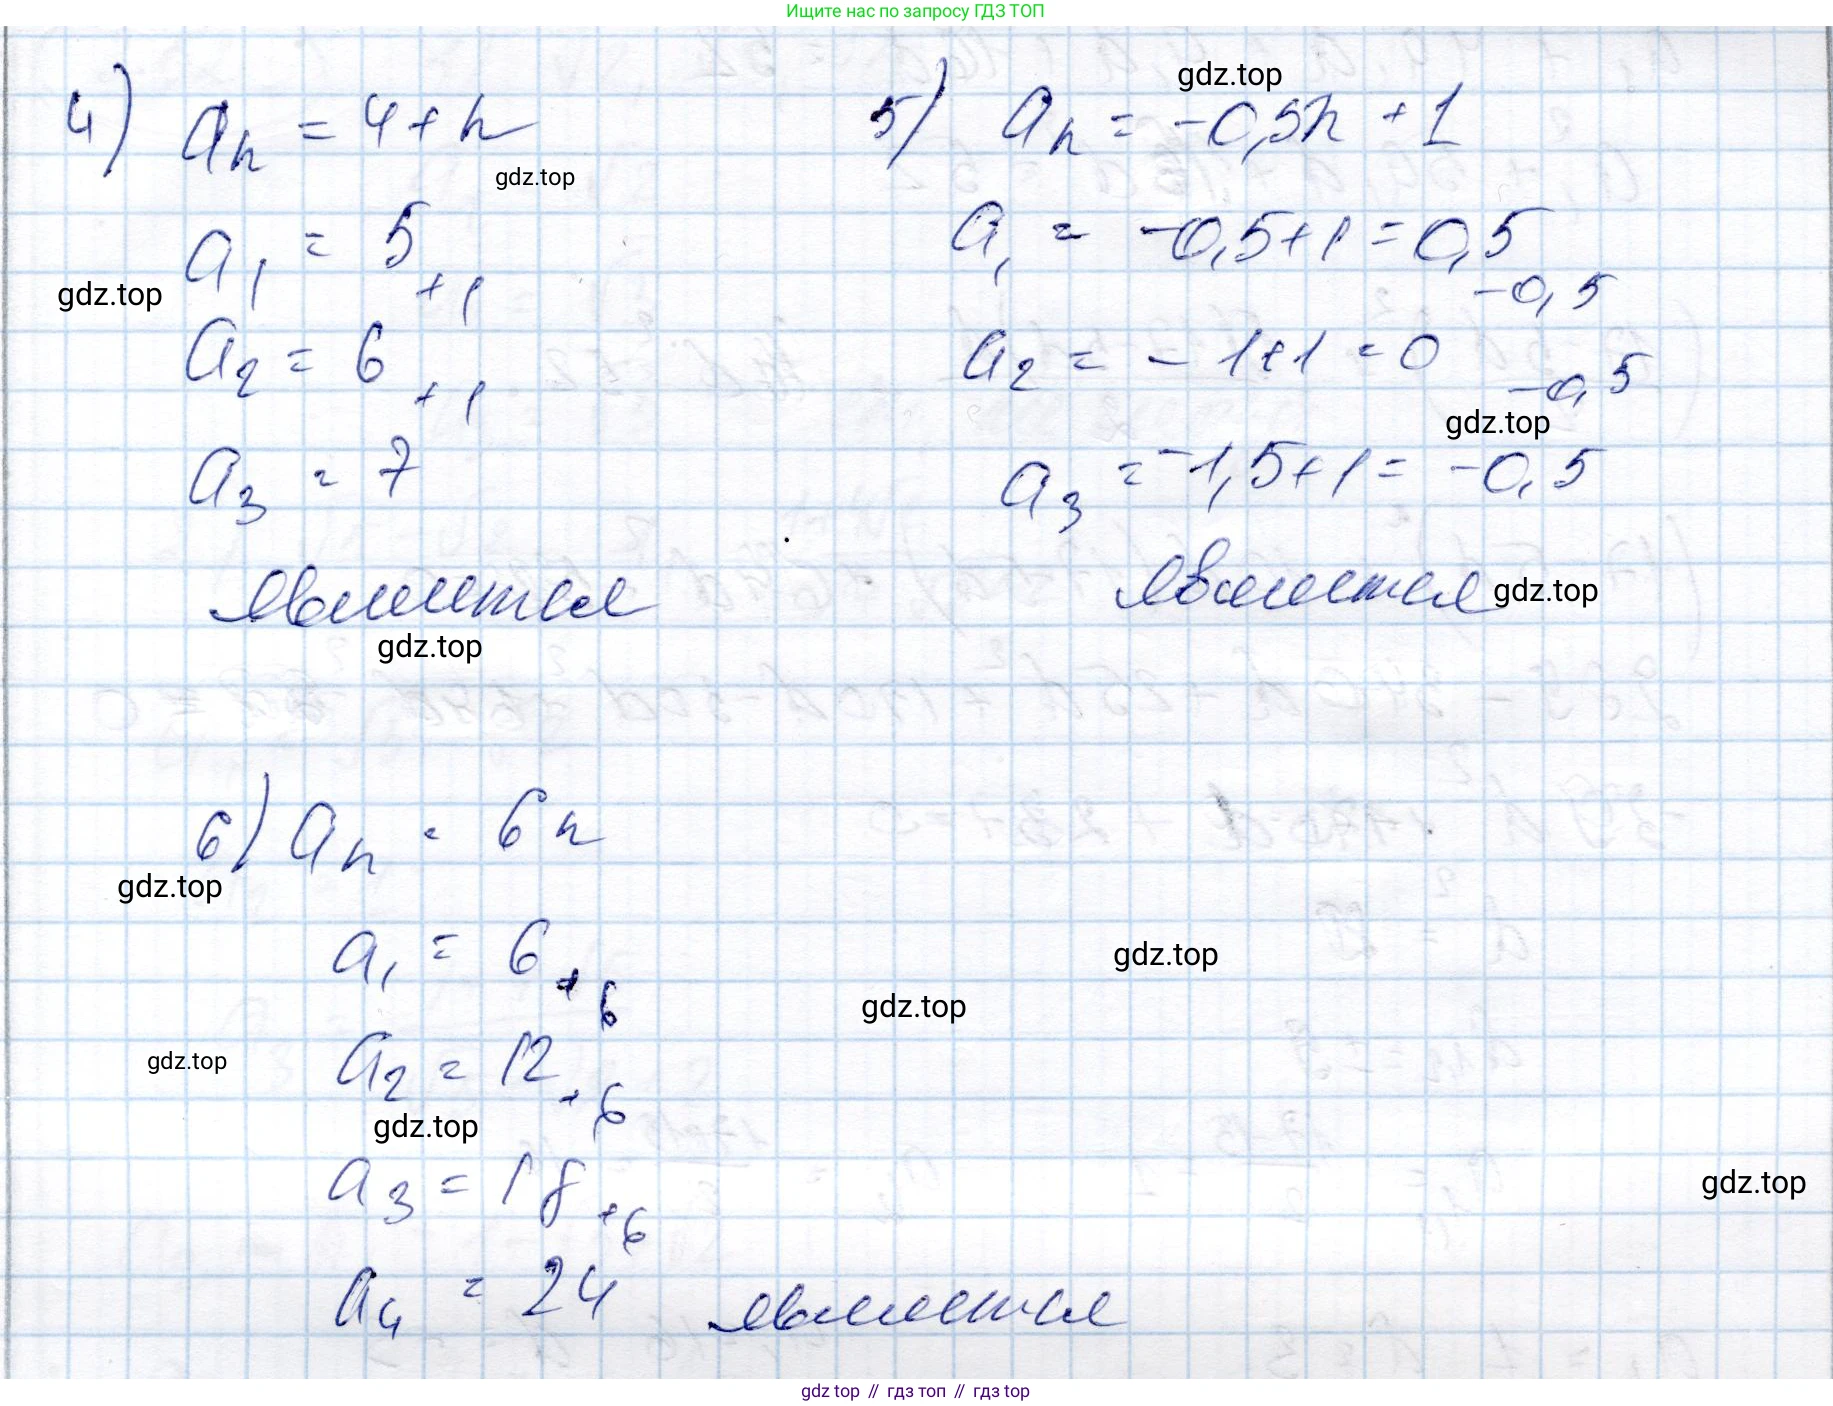 Ищите нас по запросу ГДЗ ТОП
4) aₙ = 4 + n
gdz.top
a₁ = 5
+1
gdz.top
a₂ = 6
+1
a₃ = 7
является
gdz.top
5) aₙ = -0,5n + 1
gdz.top
a₁ = -0,5+1 = 0,5
-0,5
a₂ = -1+1 = 0
-0,5
gdz.top
a₃ = -1,5+1 = -0,5
является
gdz.top
6) aₙ = 6n
gdz.top
a₁ = 6
+6
gdz.top
gdz.top
a₂ = 12
+6
gdz.top
gdz.top
a₃ = 18
+6
gdz.top
a₄ = 24 является
gdz top // гдз топ // гдз top